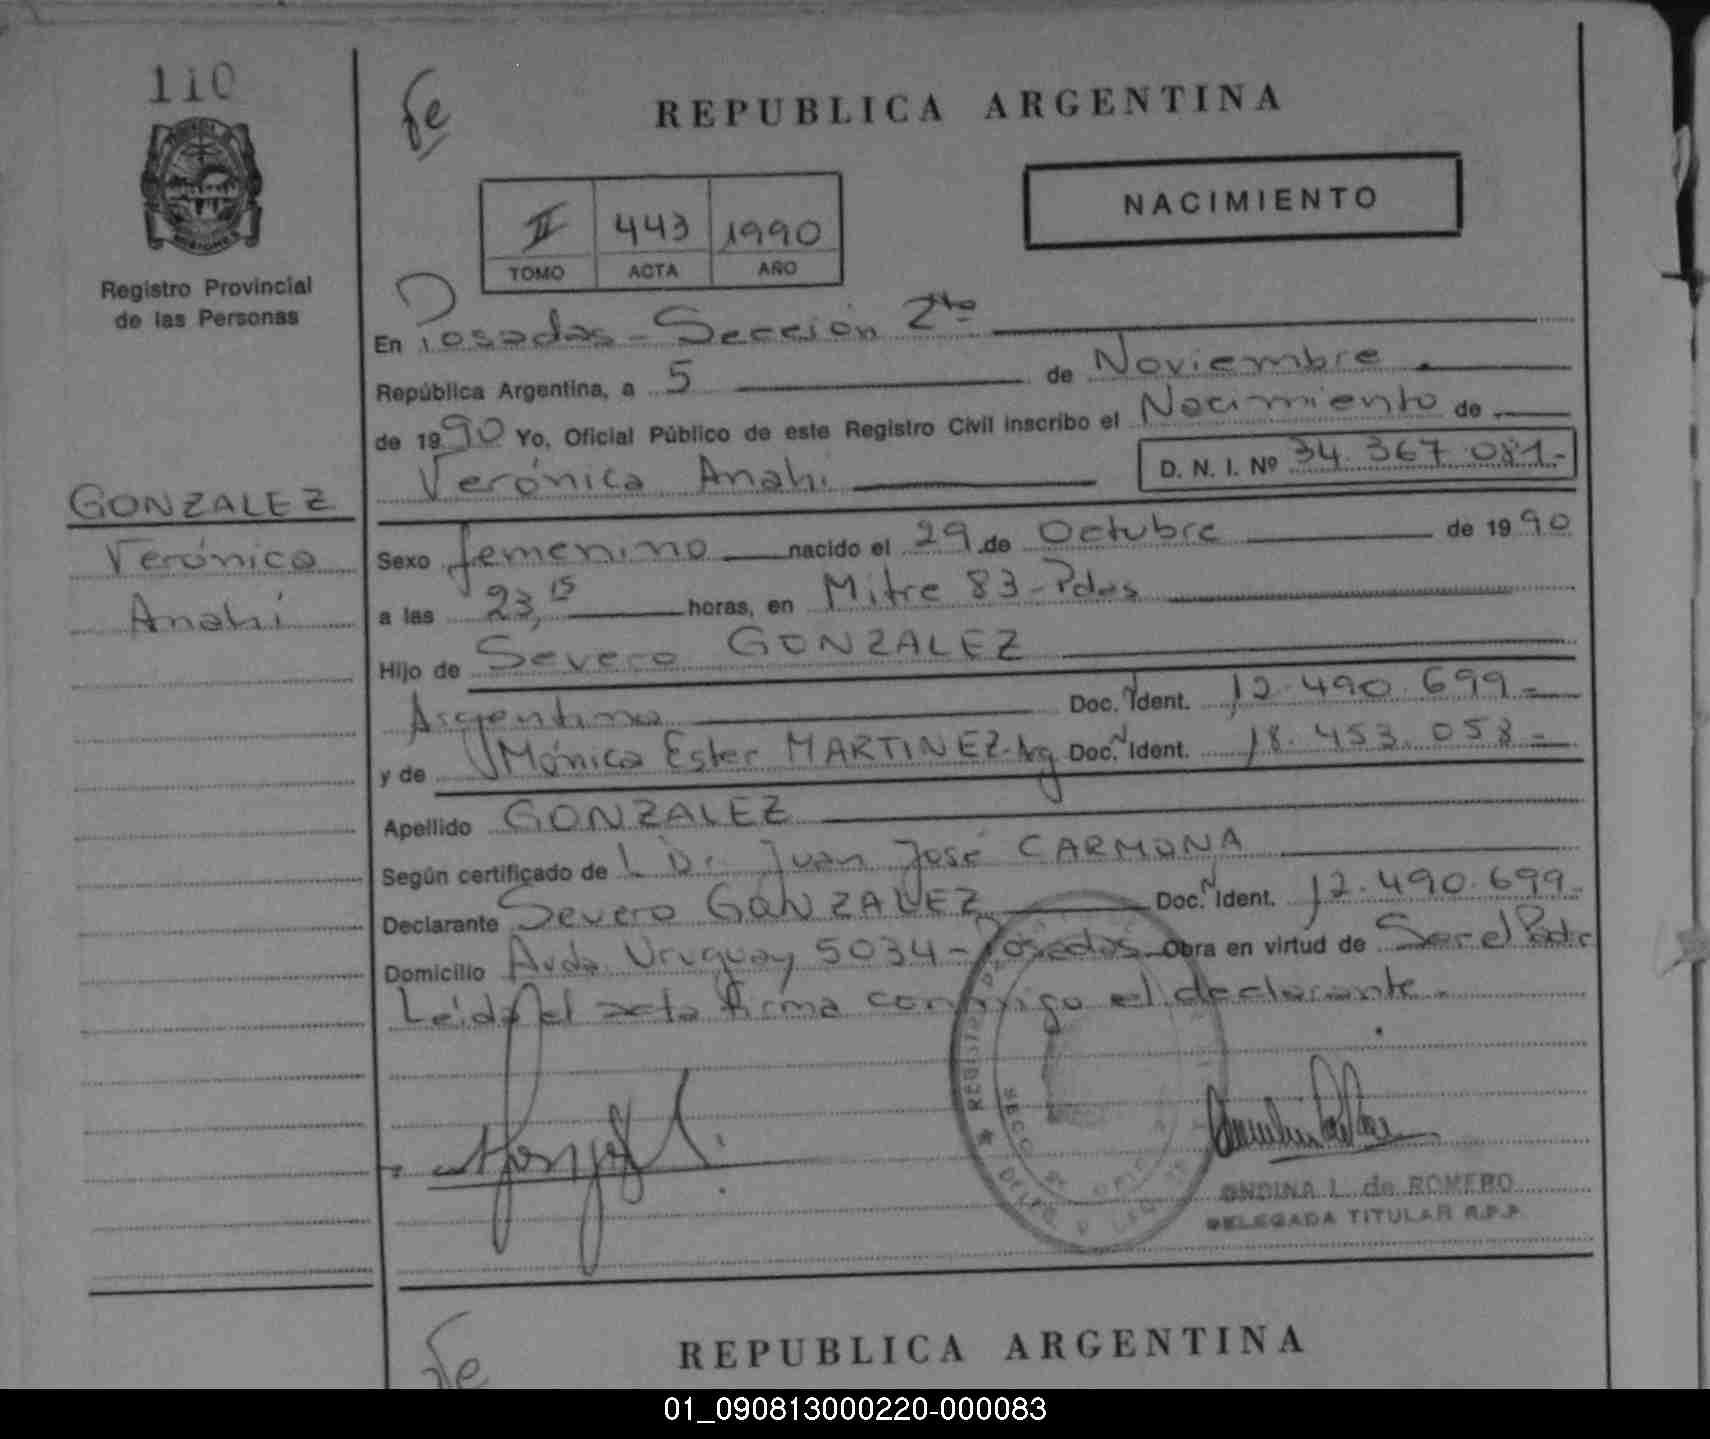 110
Registro Provincial
de las Personas
Fe
REPUBLICA ARGENTINA
II 443 1990
TOMO ACTA AÑO
NACIMIENTO
En Posadas - Sección 2da
República Argentina, a 5 de Noviembre
de 1990 Yo, Oficial Público de este Registro Civil inscribo el Nacimiento de
Verónica Anahi D. N. I. Nº 34.367.081-
GONZALEZ
Verónica
Anahí
Sexo femenino nacido el 29 de Octubre de 1990
a las 23,15 horas, en Mitre 83 - Pdas
Hijo de Severo GONZALEZ
Argentino Doc. Ident. 12.490.699-
y de Mónica Ester MARTINEZ-Arg Doc. Ident. 18.453.058-
Apellido GONZALEZ
Según certificado de L Dr. Juan José CARMONA
Declarante Severo GONZALEZ Doc. Ident. 12.490.699-
Domicilio Avda Uruguay 5034 - Posadas Obra en virtud de Ser el Padre
Leída el acta firma conmigo el declarante -
ONDINA L. de ROMERO
DELEGADA TITULAR R.P.P.
Fe
REPUBLICA ARGENTINA
01_090813000220-000083